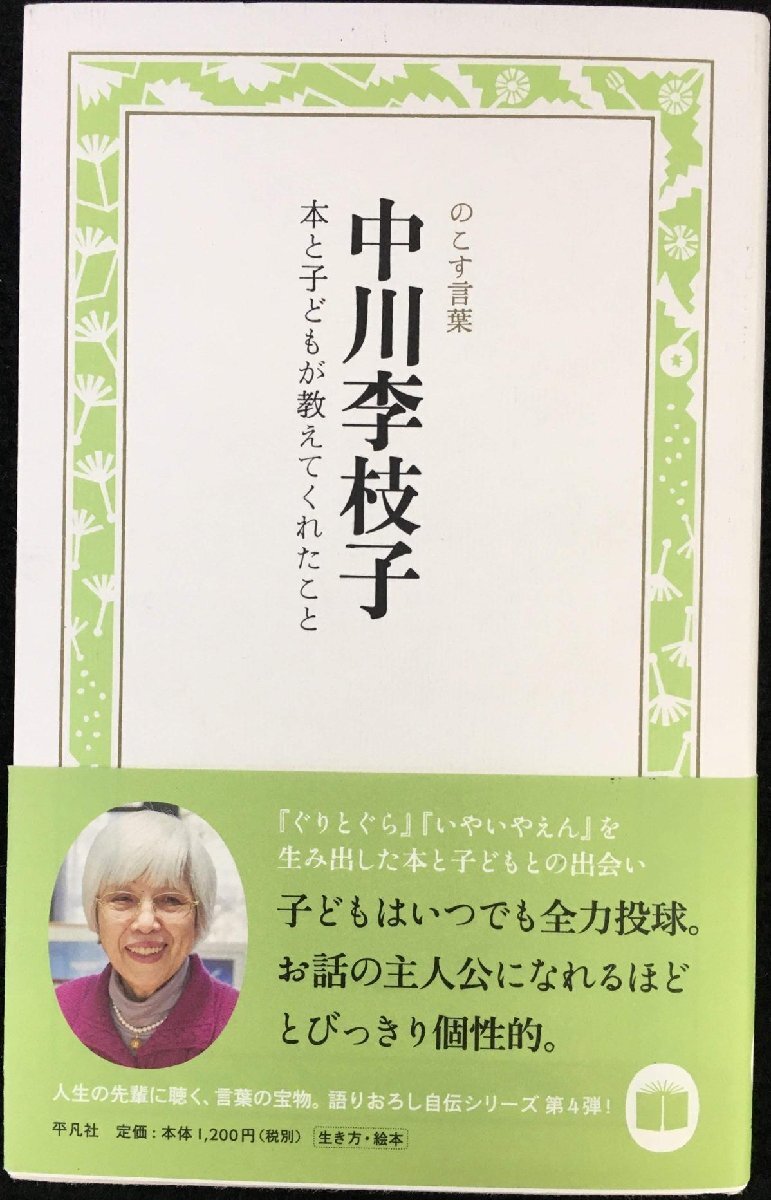 のこす言葉
中川李枝子
本と子どもが教えてくれたこと
『ぐりとぐら』『いやいやえん』を
生み出した本と子どもとの出会い
子どもはいつでも全力投球。
お話の主人公になれるほど
とびっきり個性的。
人生の先輩に聴く、言葉の宝物。語りおろし自伝シリーズ 第4弾!
平凡社 定価:本体1,200円(税別) 生き方・絵本